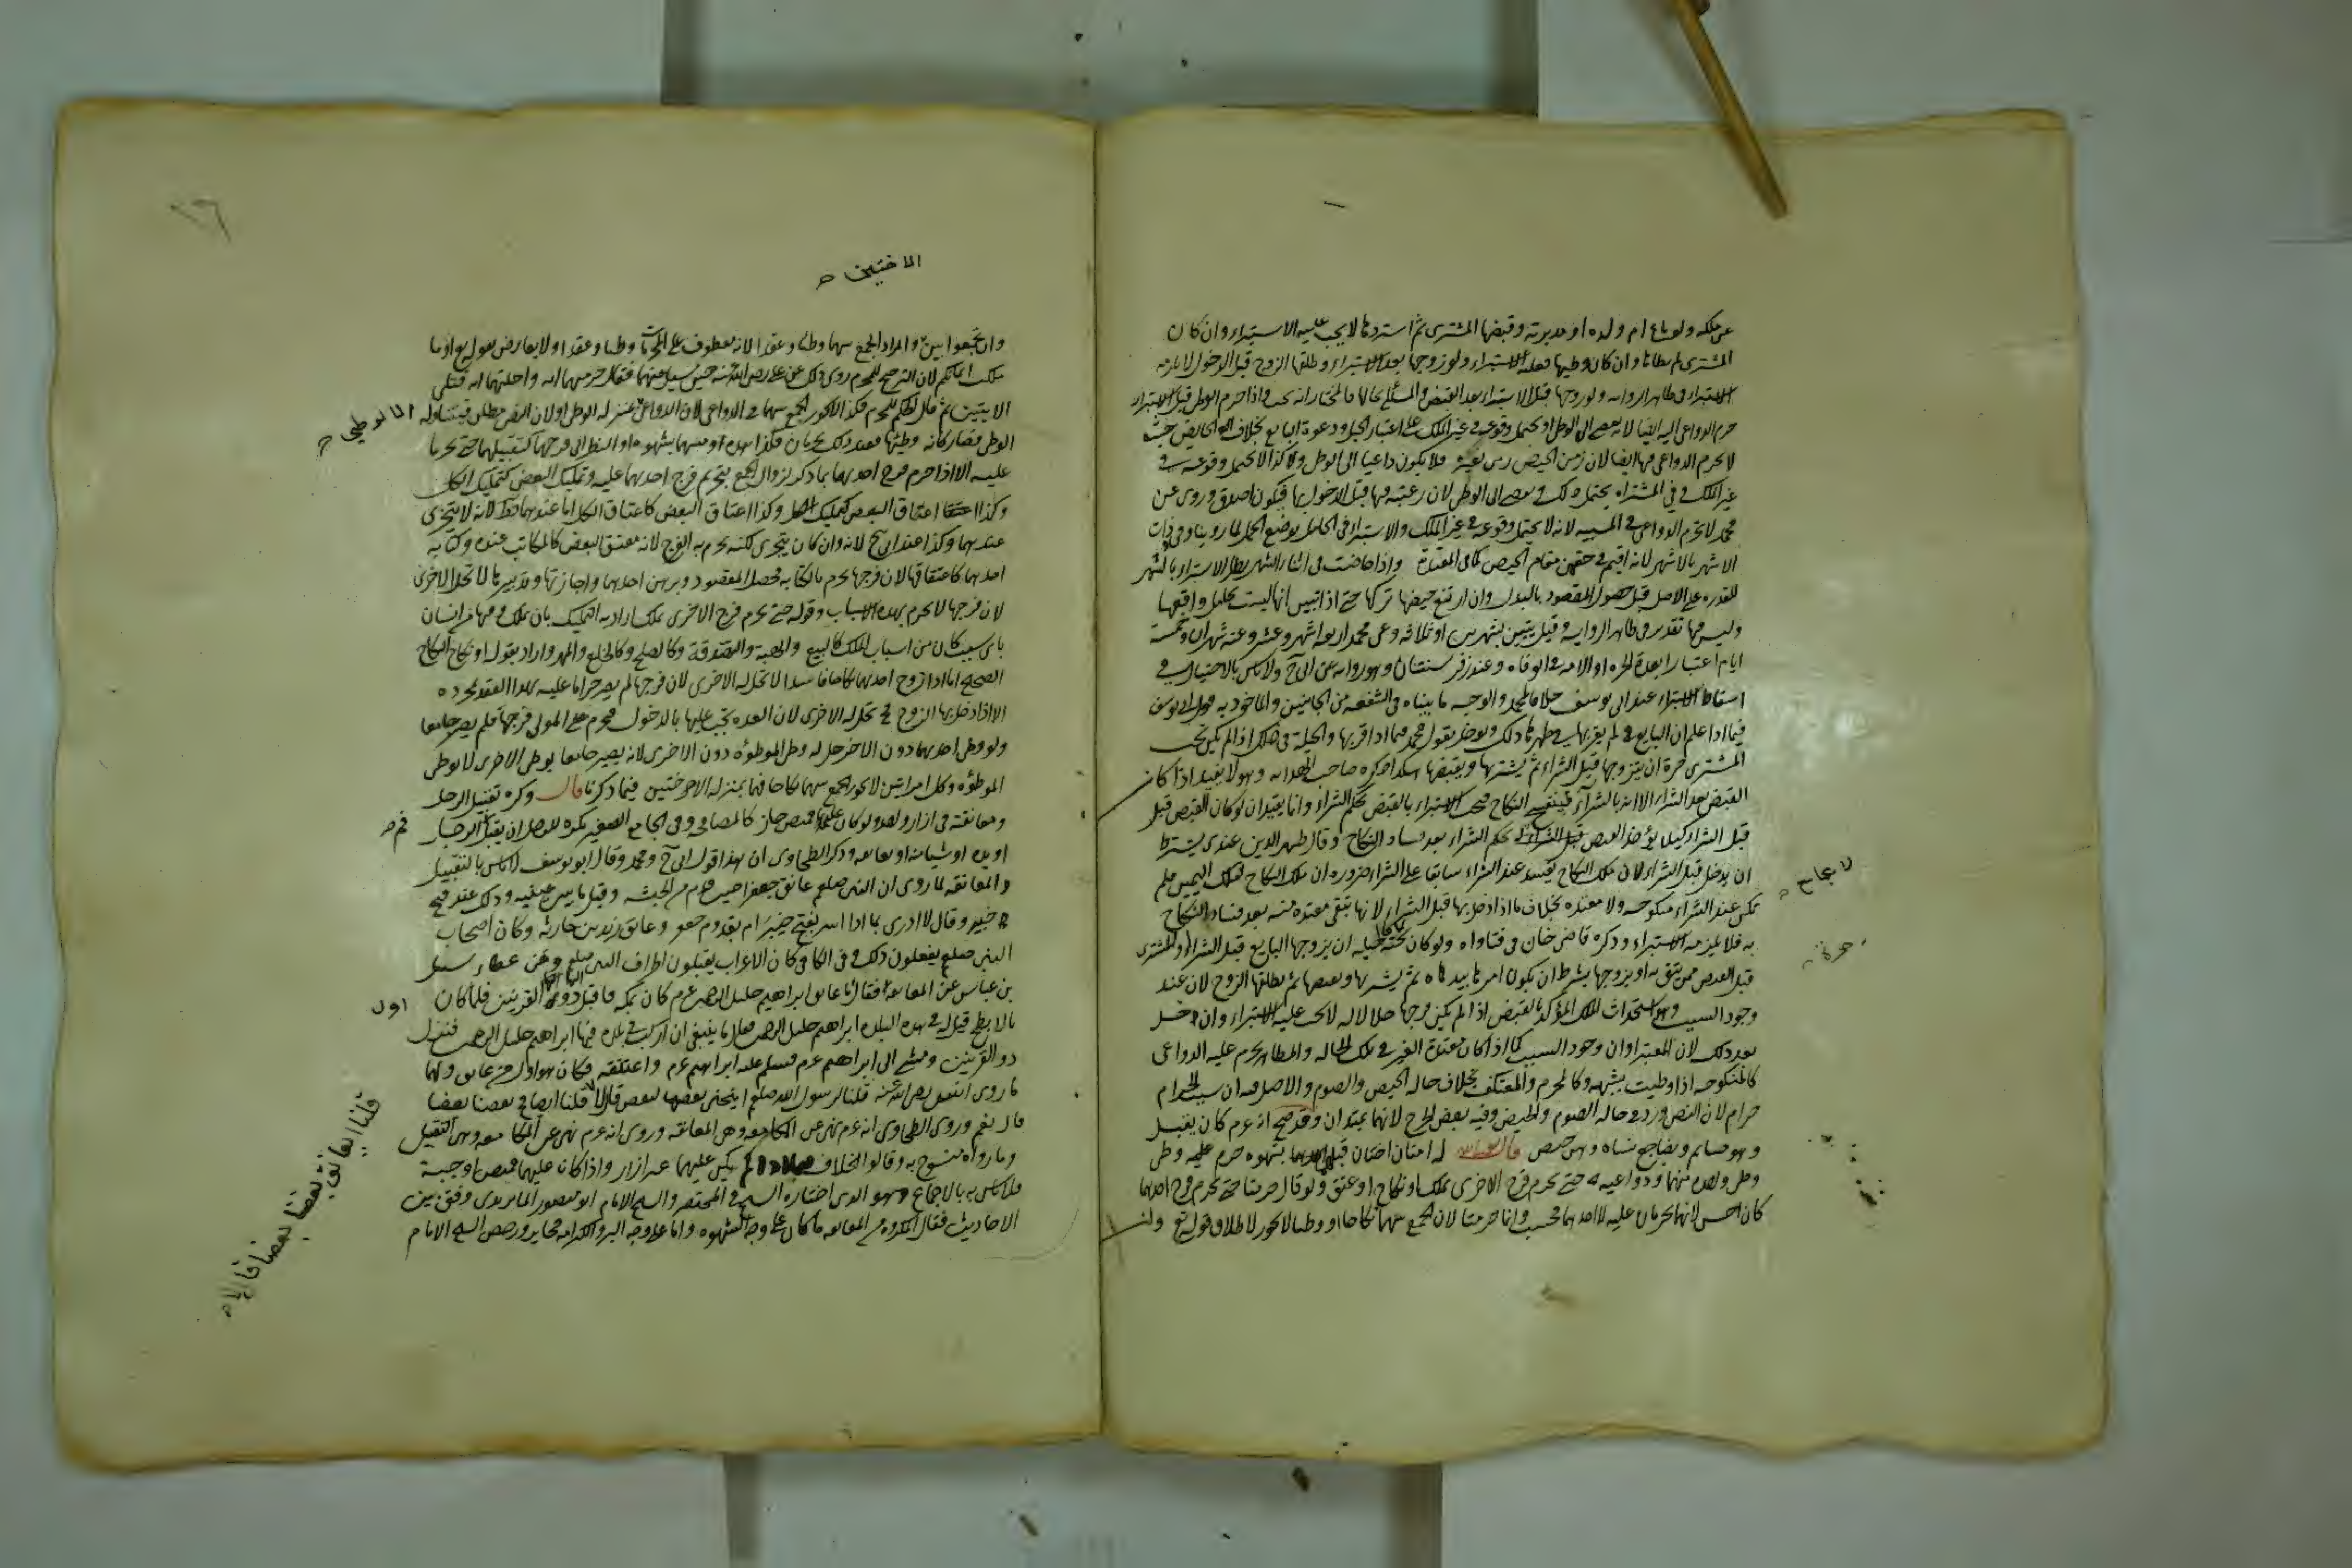 عن ملكه ولو باع ام ولده او مدبرته وقبضها المشترى ثم استردها لا يجب عليه الاستبراء وان كان
المشترى لم يطأها وان كان وطيها فعليه الاستبراء ولو زوجها بعد الاستبراء وطلقها الزوج قبل الدخول لا يلزمه
الاستبراء فى ظاهر الرواية ولو زوجها قبل الاستبراء بعد القبض والمسئلة بحالها فالمختار انه يجب واذا حرم الوطى قبل الاستبراء
حرم الدواعى اليه ايضا لانه يفضى الى الوطى او يحتمل وقوعه فى غير الملك على اعتبار الحبل ودعوة البايع بخلاف الحايض حيث
لا يحرم الدواعى فيها ايضا لان زمن الحيض زمن نفرة فلا يكون داعيا الى الوطى وكذا لا يحتمل وقوعه فى
غير الملك وفى المشتراه يحتمل ذلك ويفضى الى الوطى لان رغبته فيها قبل الدخول بها فيكون اصدق وروى عن
محمد لا يحرم الدواعى فى المسبيه لانه لا يحتمل وقوعه فى غير الملك والاستبراء فى الحامل بوضع الحمل لما روينا وفى ذات
الاشهر بالاشهر لانه اقيم فى حقهن مقام الحيض كما فى المعتدة واذا حاضت فى اثناء الشهر بطل الاستبراء بالشهر
للقدره على الاصل قبل حصول المقصود بالبدل وان ارتفع حيضها تركها حتى اذا تبين انها ليست بحامل واقعها
وليس فيها تقدير فى ظاهر الرواية وقيل يتبين بشهرين او ثلاثه وعن محمد اربعة اشهر وعشر وعنه شهران وخمسة
ايام اعتبارا بعدة الحره او الامه فى الوفاه وعند زفر سنتان وهو رواية عن ابى ح ولا باس بالاحتيال فى
اسقاط الاستبراء عند ابى يوسف خلافا لمحمد والوجه ما بيناه فى الشفعه من الجانبين والماخوذ به قول ابى يوسف
فيما اذا علم ان البايع لم يقربها فى طهرها ذلك ويؤخذ بقول محمد فيما اذا قربها والحيلة فى ذلك اذا لم يكن تحت
المشترى حرة ان يتزوجها قبل الشراء ثم يشتريها ويقبضها هكذا ذكره صاحب الهداية وهو لا يفيد اذا كان
القبض بعد الشراء
قبل الشراء كيلا يؤخذ القبض بحكم الشراء بعد فساد النكاح وقال ظهير الدين عندى يشترط
ان يدخل قبل الشراء لان ملك النكاح يفسد عند الشراء سابقا على الشراء ضرورة ان ملك النكاح لملك اليمين فلم
لا يجامع
تكن عند الشراء منكوحه ولا معتده بخلاف ما اذا دخل بها قبل الشراء لانها تبقى معتدة منه بعد فساد النكاح
به فلا يلزمه الاستبراء وذكره قاضى خان فى فتاواه ولو كان تحته فالحيله ان يزوجها البايع قبل الشراء او المشترى
حرة
قبل القبض ممن يثق به او يزوجها بشرط ان يكون امرها بيده ثم يشتريها ويقبضها ثم يطلقها الزوج لان عند
وجود السبب وهو استحداث الملك المؤكد بالقبض اذا لم يكن فرجها حلالا له لا يجب عليه الاستبراء وان دخل
بعد ذلك لان المعتبر اوان وجود السبب كما اذا كان معتدة الغير فى تلك الحاله والمظاهر يحرم عليه الدواعى
كالمنكوحه اذا وطيت بشبهة وكالمحرم والمعتكف بخلاف حالة الحيض والصوم والاصل فيه ان سبب الحرام
حرام لان النص ورد فى حالة الصوم والحيض وفيه بعض الحرج لانهما يمتدان وقد صح انه عم كان يقبل
وهو صائم ويضاجع نساه وهن حيض قال له امتان اختان قبلهما بشهوه حرم عليه وطى
وطى واحده منهما ودواعيه حتى يحرم فرج الاخرى بملك او نكاح او عتق ولو قال حرمتا حتى يحرم فرج احدهما
كان احسن لانهما يحرمان عليه لا احدهما فحسب وانما حرمتا لان الجمع بينهما نكاحا او وطيا لا يجوز لاطلاق قوله تع
الاختين صح
وان تجمعوا بين والمراد الجمع بينهما وطئا وعقدا لانه معطوف على المحرمات وطئا وعقدا ولا يعارض بقوله تع او ما
ملكت ايمانكم لان الترجيح للمحرم روى ذلك عن على رضى الله عنه حين سئل عنهما فقال حرمتهما اية واحلتهما اية فتلى
الايتين ثم قال الحكم للمحرم وكذا لا يجوز الجمع بينهما فى الدواعى لان الدواعى بمنزلة الوطى او لان النص مطلق فيتناوله
الا الوطى
الوطى فصار كانه وطيهما فعند ذلك يحرمان فكذا هذه او مسهما بشهوه او النظر الى فرجهما كتقبيلهما حتى يحرما
عليه الا اذا حرم فرج احدهما بما ذكر لزوال الجمع بتحريم فرج احدهما عليه وتمليك البعض كتمليك الكل
وكذا اعتاق البعض كاعتاق الكل اما عندهما فظ لانه لا يتجزى
عندهما وكذا عند ابى ح لانه وان كان يتجزى لكنه يحرم به الفرج لانه معتق البعض كالمكاتب عنده وكتابه
احدهما كاعتاقها لان فرجها يحرم بالكتابه فحصل المقصود وبرهن احدهما واجازتها وتدبيرها لا تحل الاخرى
لان فرجها لا يحرم بهذه الاسباب وقوله حتى يحرم فرج الاخرى بملك اراد به التمليك بان يملك فرجها من انسان
باى سبب كان من اسباب الملك كالبيع والهبة والصدقة وكالصلح وكالخلع والمهر واراد بقوله او نكاح النكاح
الصحيح اما اذا زوج احدهما نكاحا فاسدا لا تحل له الاخرى لان فرجها لم يصر حراما عليه بهذا العقد بمجرده
الا اذا دخل بها الزوج فح تحل له الاخرى لان العده تجب عليها بالدخول فيحرم على المولى فرجها فلم يصر جامعا
ولو وطى احدهما دون الاخرى حل له وطى الموطؤه دون الاخرى لانه يصير جامعا بوطى الاخرى لا بوطى
الموطؤه وكل امراتين لا يجوز الجمع بينهما نكاحا فهما بمنزله الاختين فيما ذكرنا قال وكره تقبيل الرجل
ومعانقته فى ازار واحد ولو كان عليهما قميص جاز كالمصافحه وفى الجامع الصغير يكره للرجل ان يقبل الرجل
فم صح
او يده او شيا منه او يعانقه وذكر الطحاوى ان هذا قول ابى ح ومحمد وقال ابو يوسف لا باس بالتقبيل
والمعانقه لما روى ان النبى صلعم عانق جعفرا حين قدم من الحبشه وقبل ما بين عينيه وذلك عند فتح
خيبر وقال لا ادرى بما ذا اسر بفتح خيبر ام بقدوم جعفر وعانق زيد بن حارثه وكان اصحاب
النبى صلعم يفعلون ذلك وفى الكافى كان الاعراب يقبلون اطراف النبى صلعم وعن عطاء سئل
بن عباس عن المعانقه فقال اول من عانق ابراهيم خليل الرحمن عم كان بمكه فاقبل ذو القرنين فلما كان
اول
بالابطح قيل له فى هذه البلده ابراهيم خليل الرحمن فقال ما ينبغى ان اركب فى بلده فيها ابراهيم خليل الرحمن فنزل
ذو القرنين ومشى الى ابراهيم عم فسلم عليه ابراهيم عم واعتنقه فكان هو اول من عانق ولهما
ما روى انس رضى الله عنه قلنا لرسول الله صلعم اينحنى بعضنا لبعض قال لا قلنا ايصافح بعضنا بعضا
قلنا ايعانق بعضنا بعضا قال لا صح
قال نعم وروى الطحاوى انه عم نهى عن المكامعه وهى المعانقه وروى انه عم نهى عن المكاعمه وهى التقبيل
وما رواه منسوخ به وقالوا الخلاف فيما اذا لم يكن عليهما غير ازار واذا كان عليهما قميص او جبة
فلا باس به بالاجماع وهو الذى اختاره الشيخ فى المختصر والشيخ الامام ابو منصور الماتريدى وفق بين
الاحاديث فقال المكروه من المعانقه ما كان على وجه الشهوه واما على وجه البر والكرامه فجايز ورخص الشيخ الامام